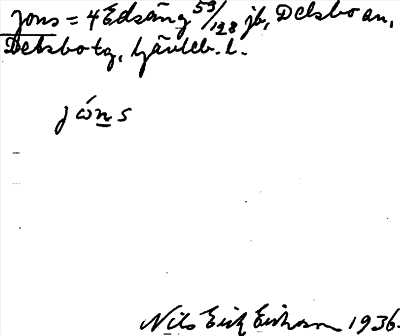 Jons = 4 Edsäng 53/128 jb, Delsbo an,
Delsbo tg, Gävleb. l.
jóns
Nils Erik Eriksson 1936.